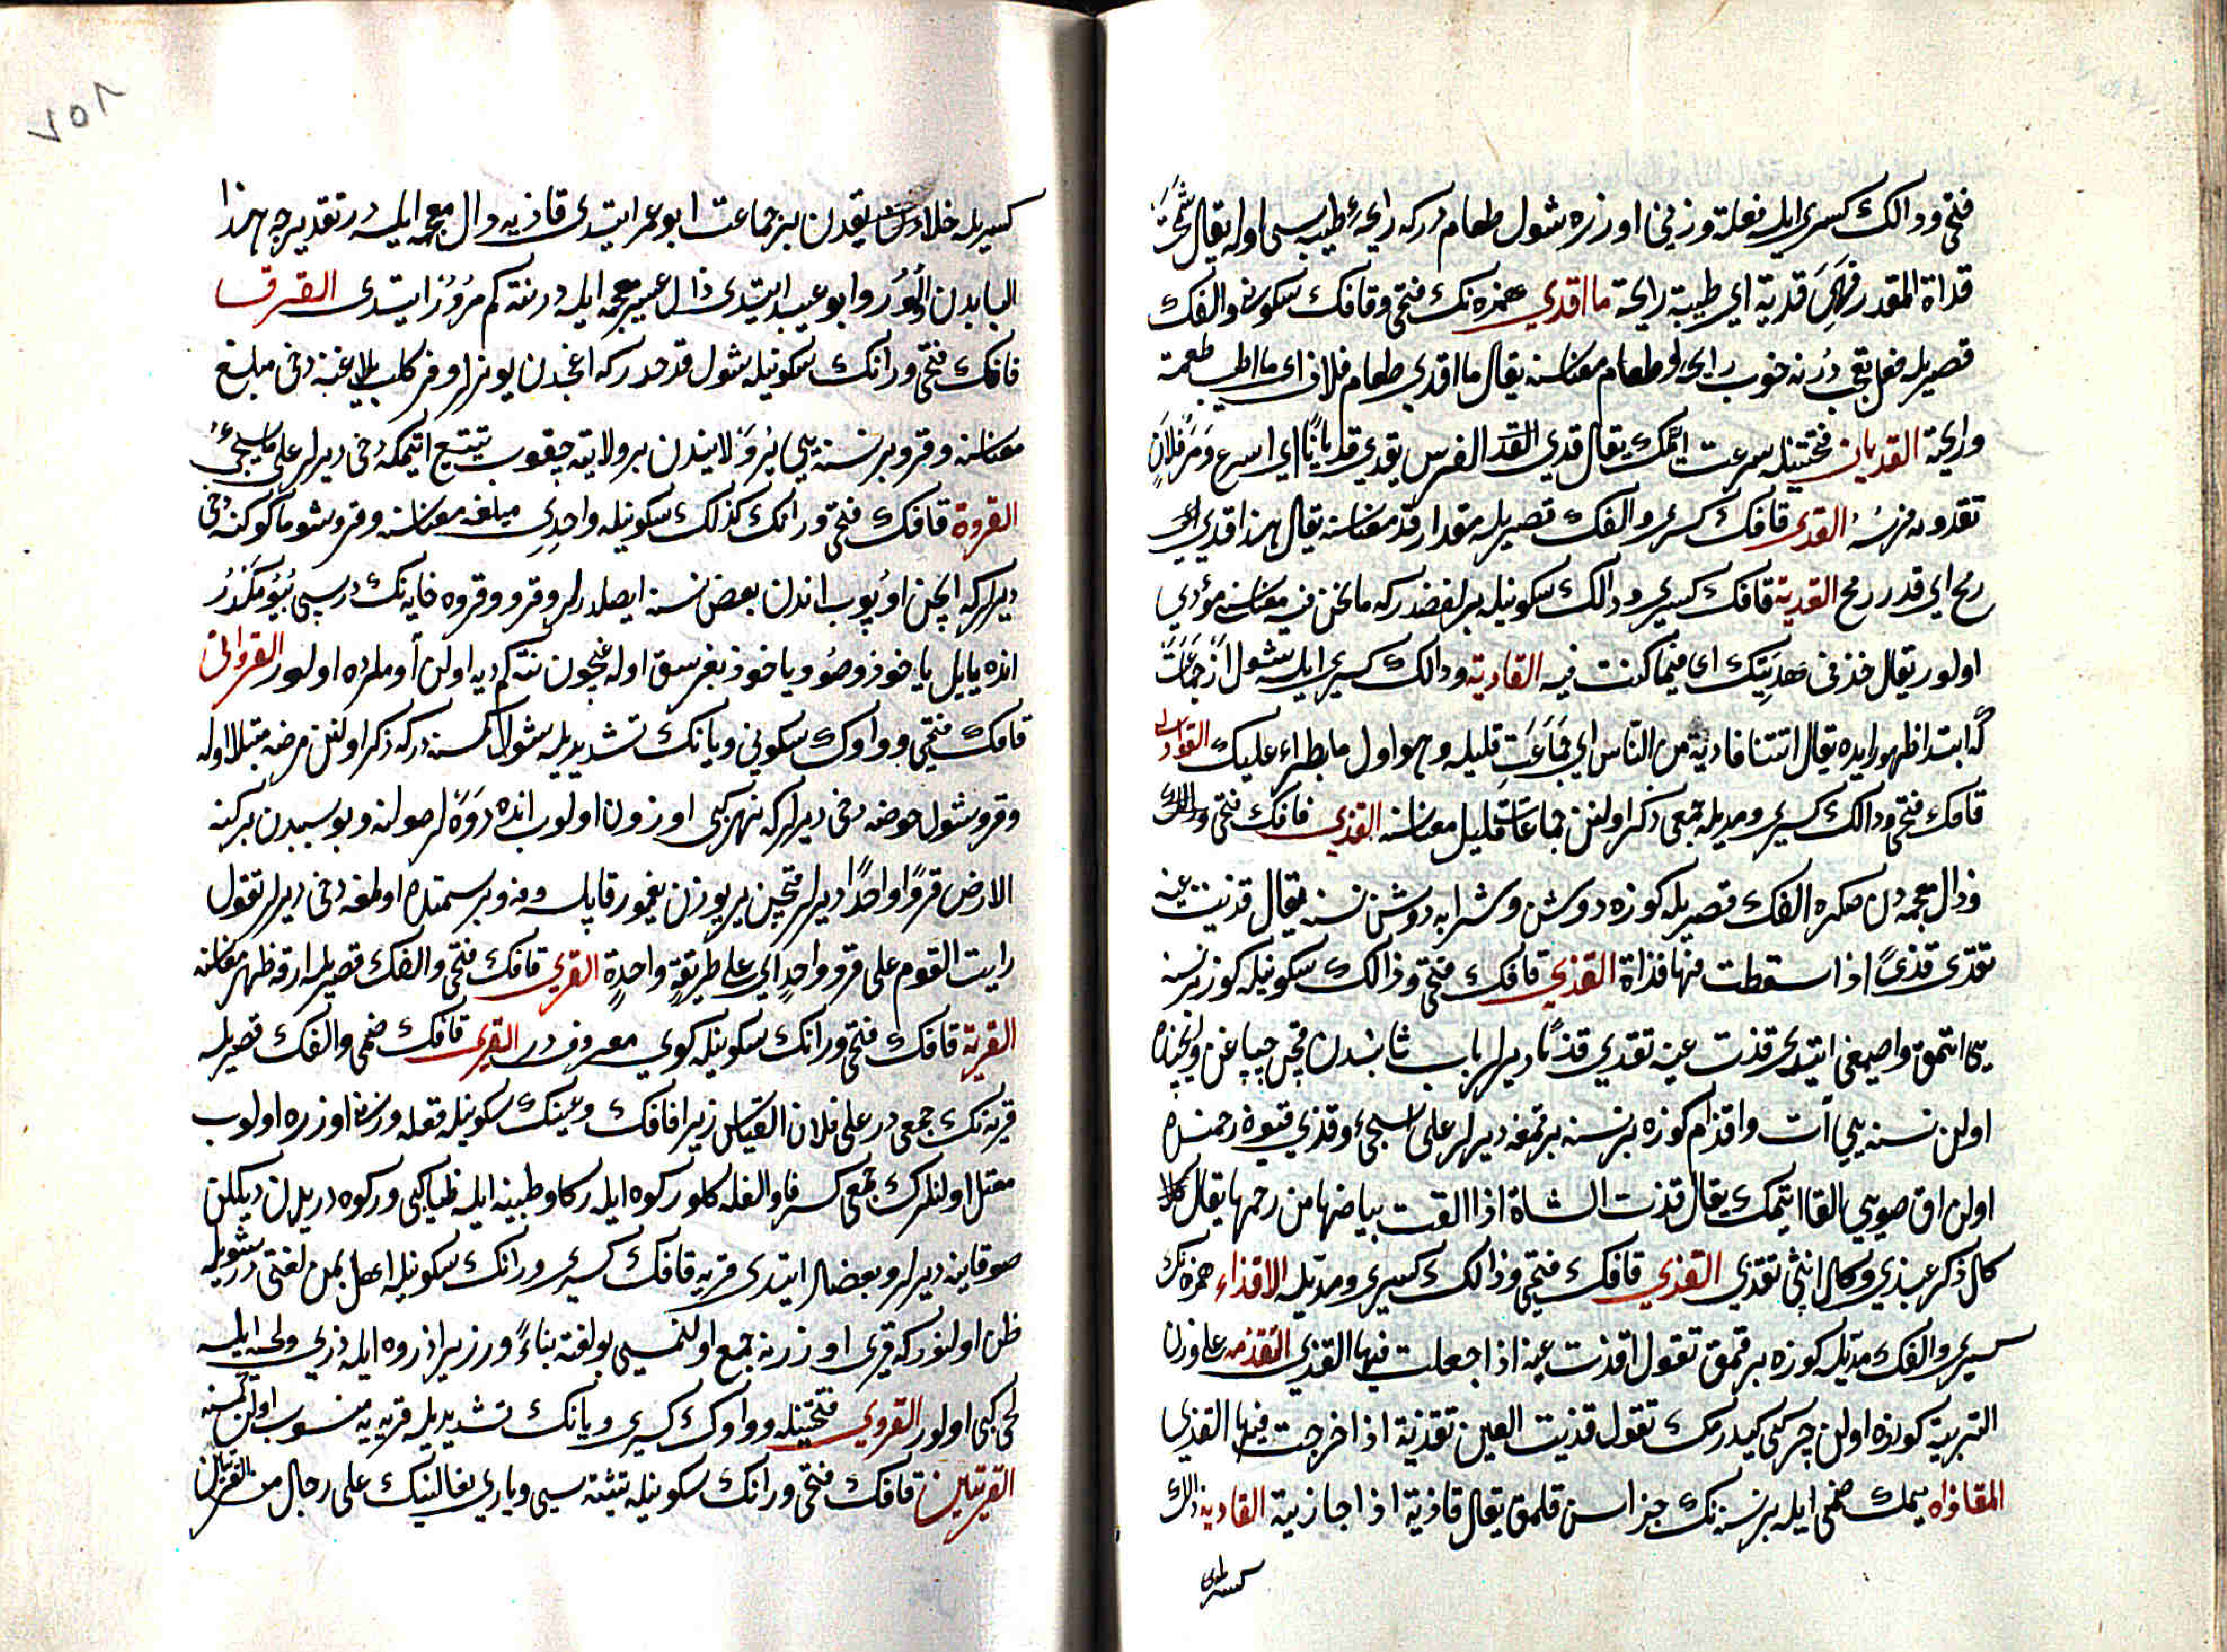 فتحی ودالك كسری ایله فعلة وزنی اوزره شول طعام در كه رایحۀ طیبه سی اوله یقال شممت
قداة القدر فهی قدیة ای طیبة رایحة ما اقدی همزه نك فتحی وقافك سكونی والفك
قصریله فعل تعجب در نه خوب رایحه لو طعام معناسنه یقال ما اقدی طعام فلان ای ما اطیب طعمه
ورایحته القدیان فتحتینله سرعت اتمك یقال قدی الفرس یقدی قدیانًا ای اسرع ومر فلان
تقدو به فرسه القدی قافك كسری والفك قصریله مقدار قد معناسنه یقال هذا قدی
رمح ای قدر رمح القدیة قافك كسری ودالك سكونیله بر لفظدر كه مانحن فیه معناسنه مؤدی
اولور یقال خذ فی هدیتك ای فیما كنت فیه القادیة ودالك كسری ایله شول از جماعت
كه ابتدا ظهور ایده یقال اتتنا قادیة من الناس ای جماعة قلیله وهو اول ما یطراء علیك
قافك فتحی ودالك كسری ومدیله جمعی ذكر اولنن جماعات قلیل معناسنه القذی قافك فتحی
وذال معجمه دن صكره الفك قصریله كوزه دوشن وشرابه دوشن نسنه یقال قذیت عینه
تقذی قذیً اذا سقطت فیها قذاة القذی قافك فتحی وذالك سكونیله كوز بر نسنه
یی اتمق واصمعی ایتدی قذت عینه تقذی قذیًا دیرلر باب ثانیدن قچن چپاغن
اولن نسنه یی آت واقذام كوزه بر نسنه برقمغه دیرلر علی ما سیجیء وقذی قیوه رحمنده
اولن اق صویی القا اتمك یقال قذت الشاة اذا القت بیاضها من رحمها یقال
كل ذكر یمذی وكل انثی تقذی القذی قافك فتحی وذالك كسری ومدیله الاقذاء همزه نك
كسری والفك مدیله كوزه برقمق تقول اقذیت عینه اذا جعلت فیها القذی التقذیه علی وزن
التربیه كوزده اولن چركی كیدرمك تقول قذیت العین تقذیة اذا اخرجت فیها القذی
المقاذاه میمك ضمی ایله بر نسنه نك جزاسن قلمق یقال قاذیته اذا جازیته القاذیه ذالك
كسریله
٧٥٨
كسریله خلاء بریقدن بر جماعت ابو عمر ایتدی قاذیه دال معجمه ایله در تقدیرجه هذا
البابدن اولور وابو عبید ایتدی ذال غیر معجمه ایله در نته كم مرور ایتدی القرو
قافك فتحی ورانك سكونیله شول قدحدر كه اغجدن یونرلر وفر كلب یلاغنه دخی میلغ
معناسنه وقرو بر نسنه یی یرو لایندن بر ولایته چقوب تتبع اتمكه دخی دیرلر علی ما سیجیء
القروة قافك فتحی ورانك كذلك سكونیله واحدی میلغه معناسنه وقرو شو ما كوكنه دخی
دیرلر كه ایچن اویوب اندن بعض نسنه ایصلدرلر وقرو وقروه فایه نك درسی بیومكدر
انده یا یل یا خود صو ویا خود بغرسق اوله غیچون نته كم دیه اولن آوملرده اولور القروانی
قافك فتحی وواوك سكونی ویانك تشدیدیله شول كمسنه در كه ذكر اولنن مرضه مبتلا اوله
وقرو شول حوضه دخی دیرلر كه نهر كبی اوزون اولوب انده دوه لر صولنه وبو سببدن تركت
الارض قروًا واحدًا دیرلر قچن یر یوزن یغمور قاپلسه وفه وبر سمتده اولمغه دخی دیرلر تقول
رایت القوم علی قرو واحد ای علی طریقة واحدة القری قافك فتحی والفك قصریله ارقه ظهر معناسنه
القریة قافك فتحی ورانك سكونیله كوی معروف در القری قافك ضمی والفك قصریله
قریه نك جمعی در علی فلان القیاس زیرا قافك وعینك سكونیله فعله وزنی اوزره اولوب
معتل اولنلرك جمعی كسر فا والفله كلور ركوه ایله ركا وظبیه ایله ظبا كبی وركوه دریدن دیكلن
صوقابنه دیرلر وبعضلر ایتدی قریه قافك كسری ورانك سكونیله اهل یمن لغتی در شویله
ظن اولنور كه قری اوزرنه جمع اولنمسی بو لغته بناءً در زیرا ذروه ایله ذری ولحیه ایله
لحی كبی اولور القروی فتحتینله وواوك كسری ویانك تشدیدیله قریه یه منسوب اولن كمسنه
القریتین قافك فتحی ورانك سكونیله تثنیه سی وباری تعالینك علی رجل من القریتین